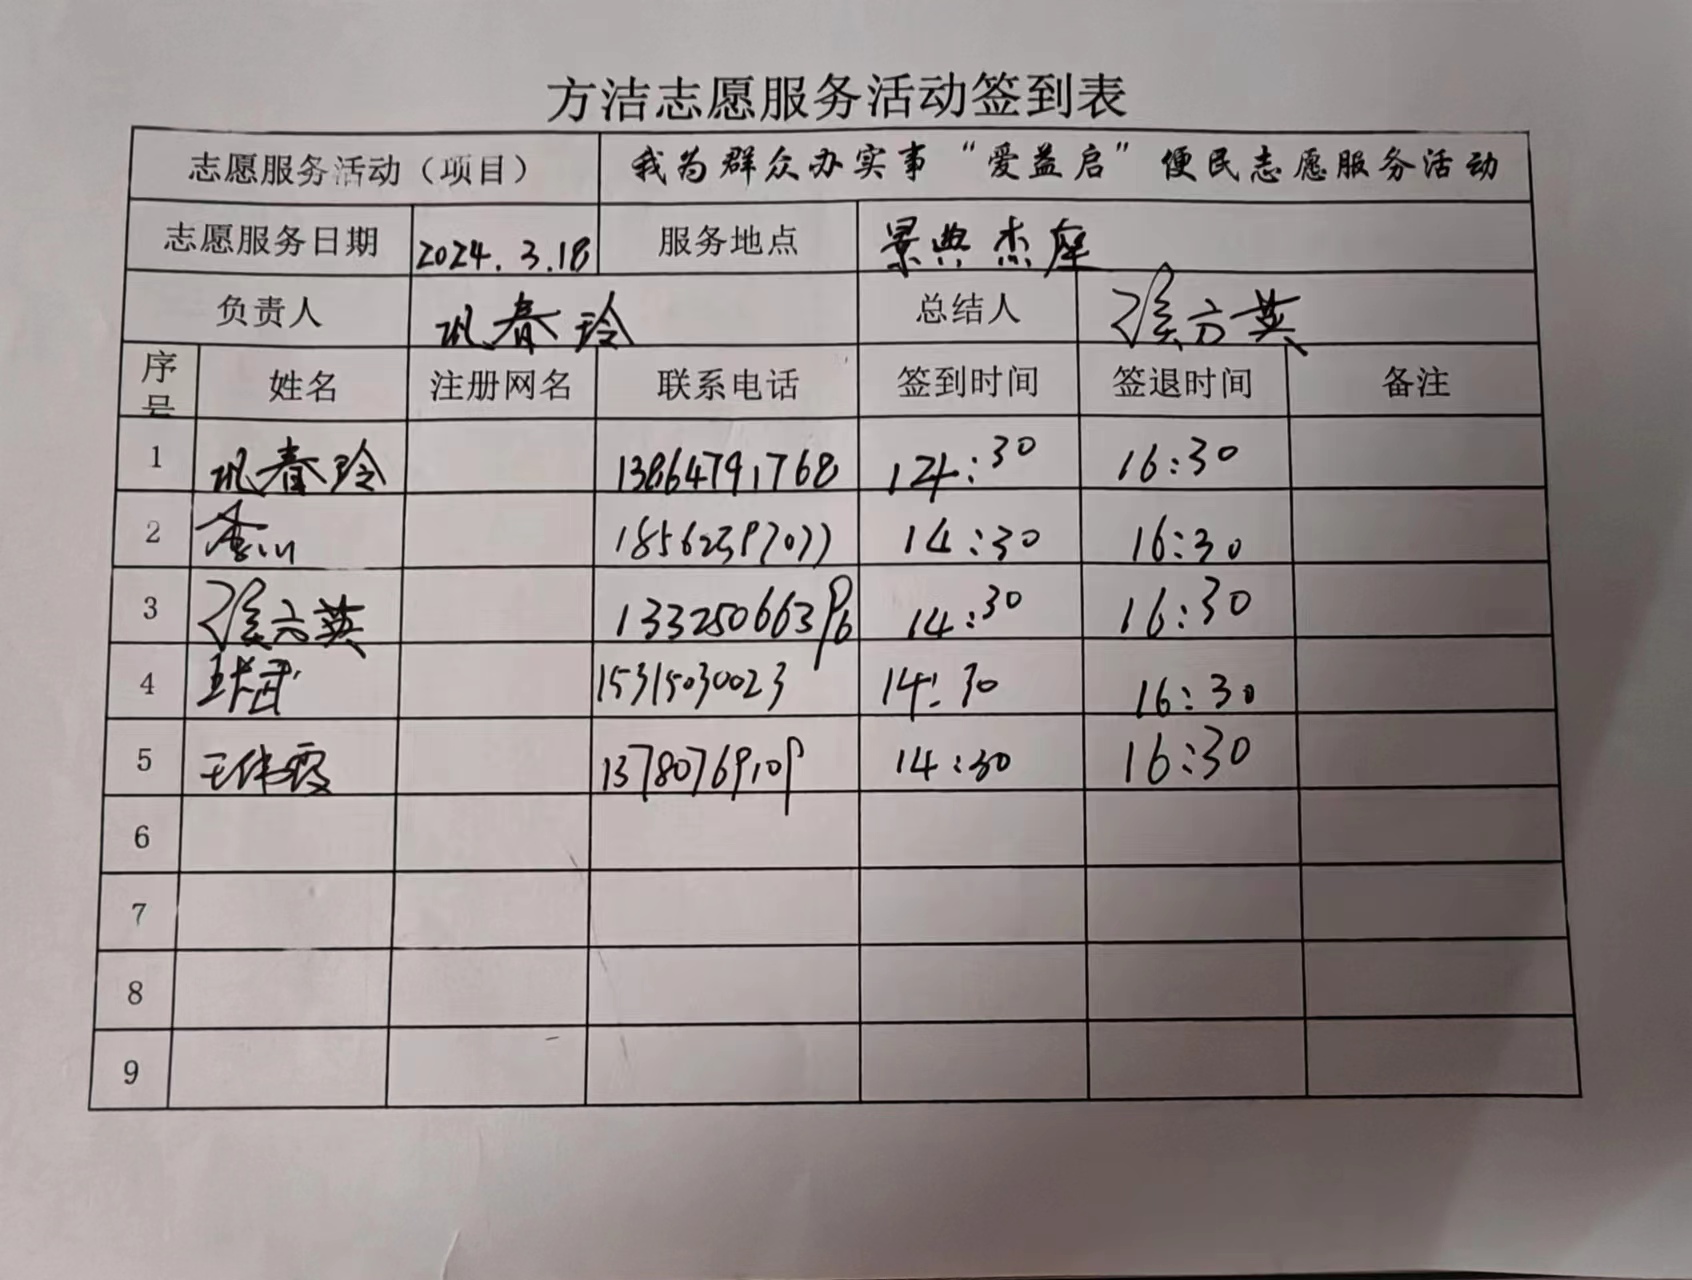 方洁志愿服务活动签到表
志愿服务活动（项目） 我为群众办实事“爱益启”便民志愿服务活动
志愿服务日期 2024.3.18 服务地点 景典杰座
负责人 巩春玲 总结人
序号 姓名 注册网名 联系电话 签到时间 签退时间 备注
1 巩春玲 13864791768 14:30 16:30
2 18562397077 14:30 16:30
3 14:30 16:30
4 15315030023 14:30 16:30
5 王伟霞 13780769109 14:30 16:30
6
7
8
9